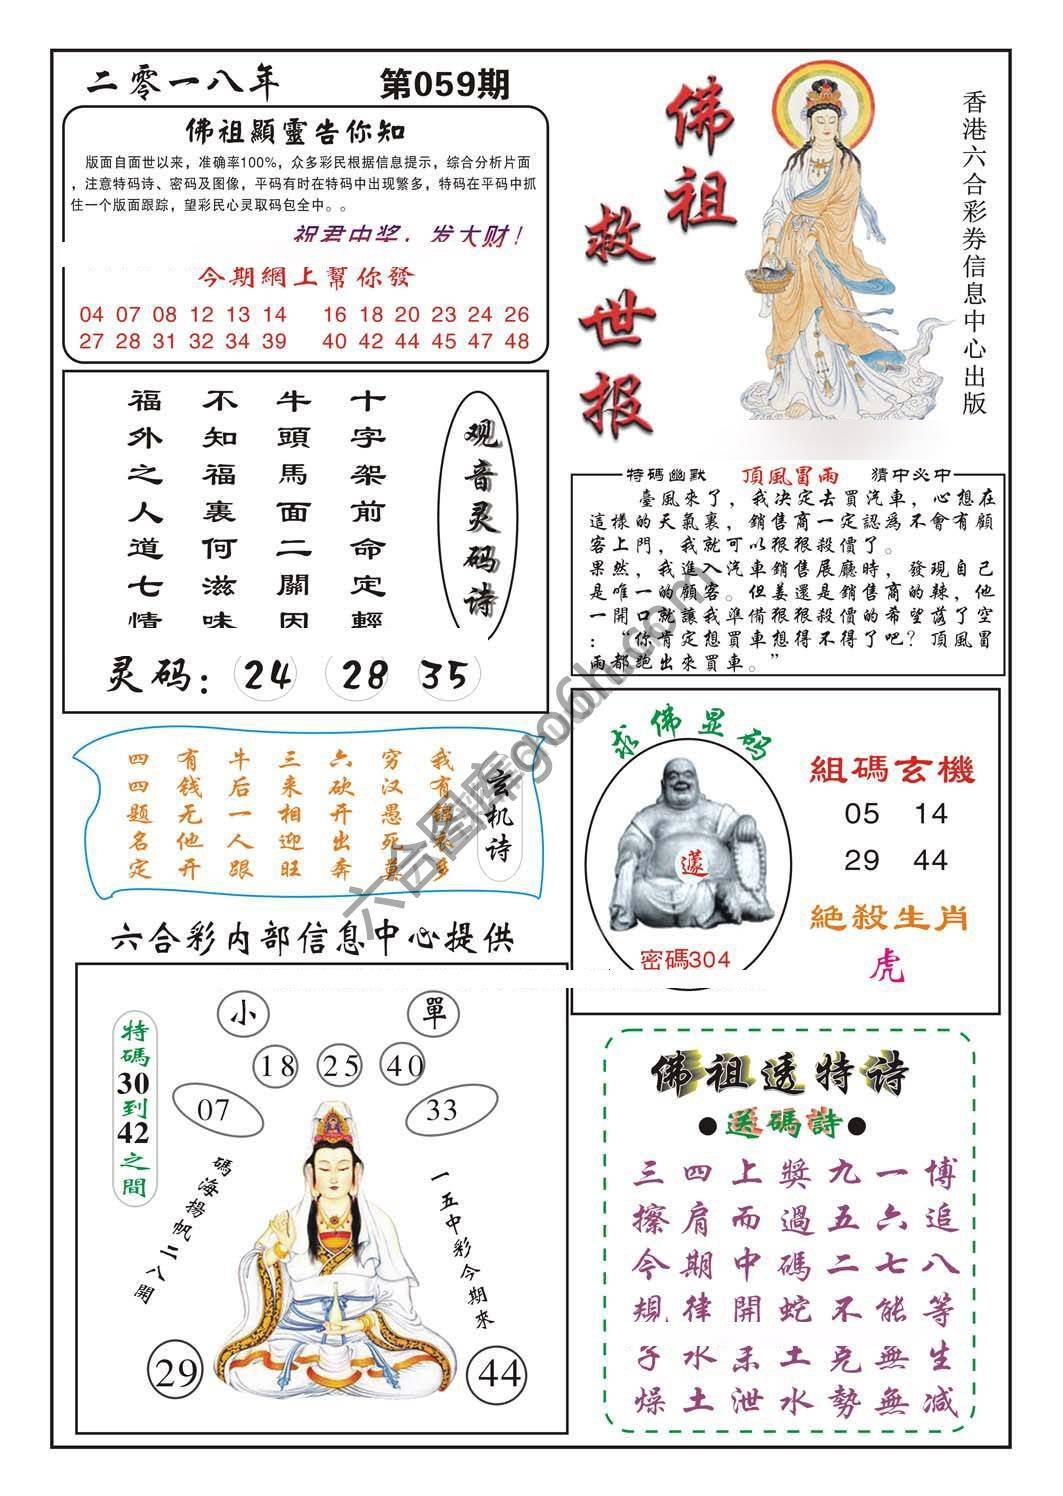 二零一八年
第059期
佛祖顯靈告你知
版面自面世以来，准确率100%，众多彩民根据信息提示，综合分析片面
，注意特码诗、密码及图像，平码有时在特码中出现繁多，特码在平码中抓
住一个版面跟踪，望彩民心灵取码包全中。。
祝君中奖，发大财！
今期網上幫你發
04 07 08 12 13 14 16 18 20 23 24 26
27 28 31 32 34 39 40 42 44 45 47 48
佛祖
救世报
香港六合彩券信息中心出版
观音灵码诗
十字架前命定輕
牛頭馬面二關因
不知福裏何滋味
福外之人道七情
灵码：24 28 35
特碼幽默 頂風冒雨 猜中必中
臺風來了，我決定去買汽車，心想在
這樣的天氣裏，銷售商一定認爲不會有顧
客上門，我就可以狠狠殺價了。
果然，我進入汽車銷售展廳時，發現自己
是唯一的顧客。但姜還是銷售商的辣，他
一開口就讓我準備狠狠殺價的希望落了空
：“你肯定想買車想得不得了吧？頂風冒
雨都跑出來買車。”
玄机诗
我有锦衣多
穷汉愚死莫
六砍开出奔
三来相迎旺
牛后一人跟
有钱无他开
四四题名定
求佛显码
密碼304
組碼玄機
05 14
29 44
絕殺生肖
虎
六合彩内部信息中心提供
小
單
18 25 40
07
33
特碼30到42之間
碼海揚帆二八開
一五中彩今期來
29
44
佛祖透特诗
●送碼詩●
三四上獎九一博
擦肩而過五六追
今期中碼二七八
規律開蛇不能等
子水未土克無生
燥土泄水勢無减
六合图库go6h.com